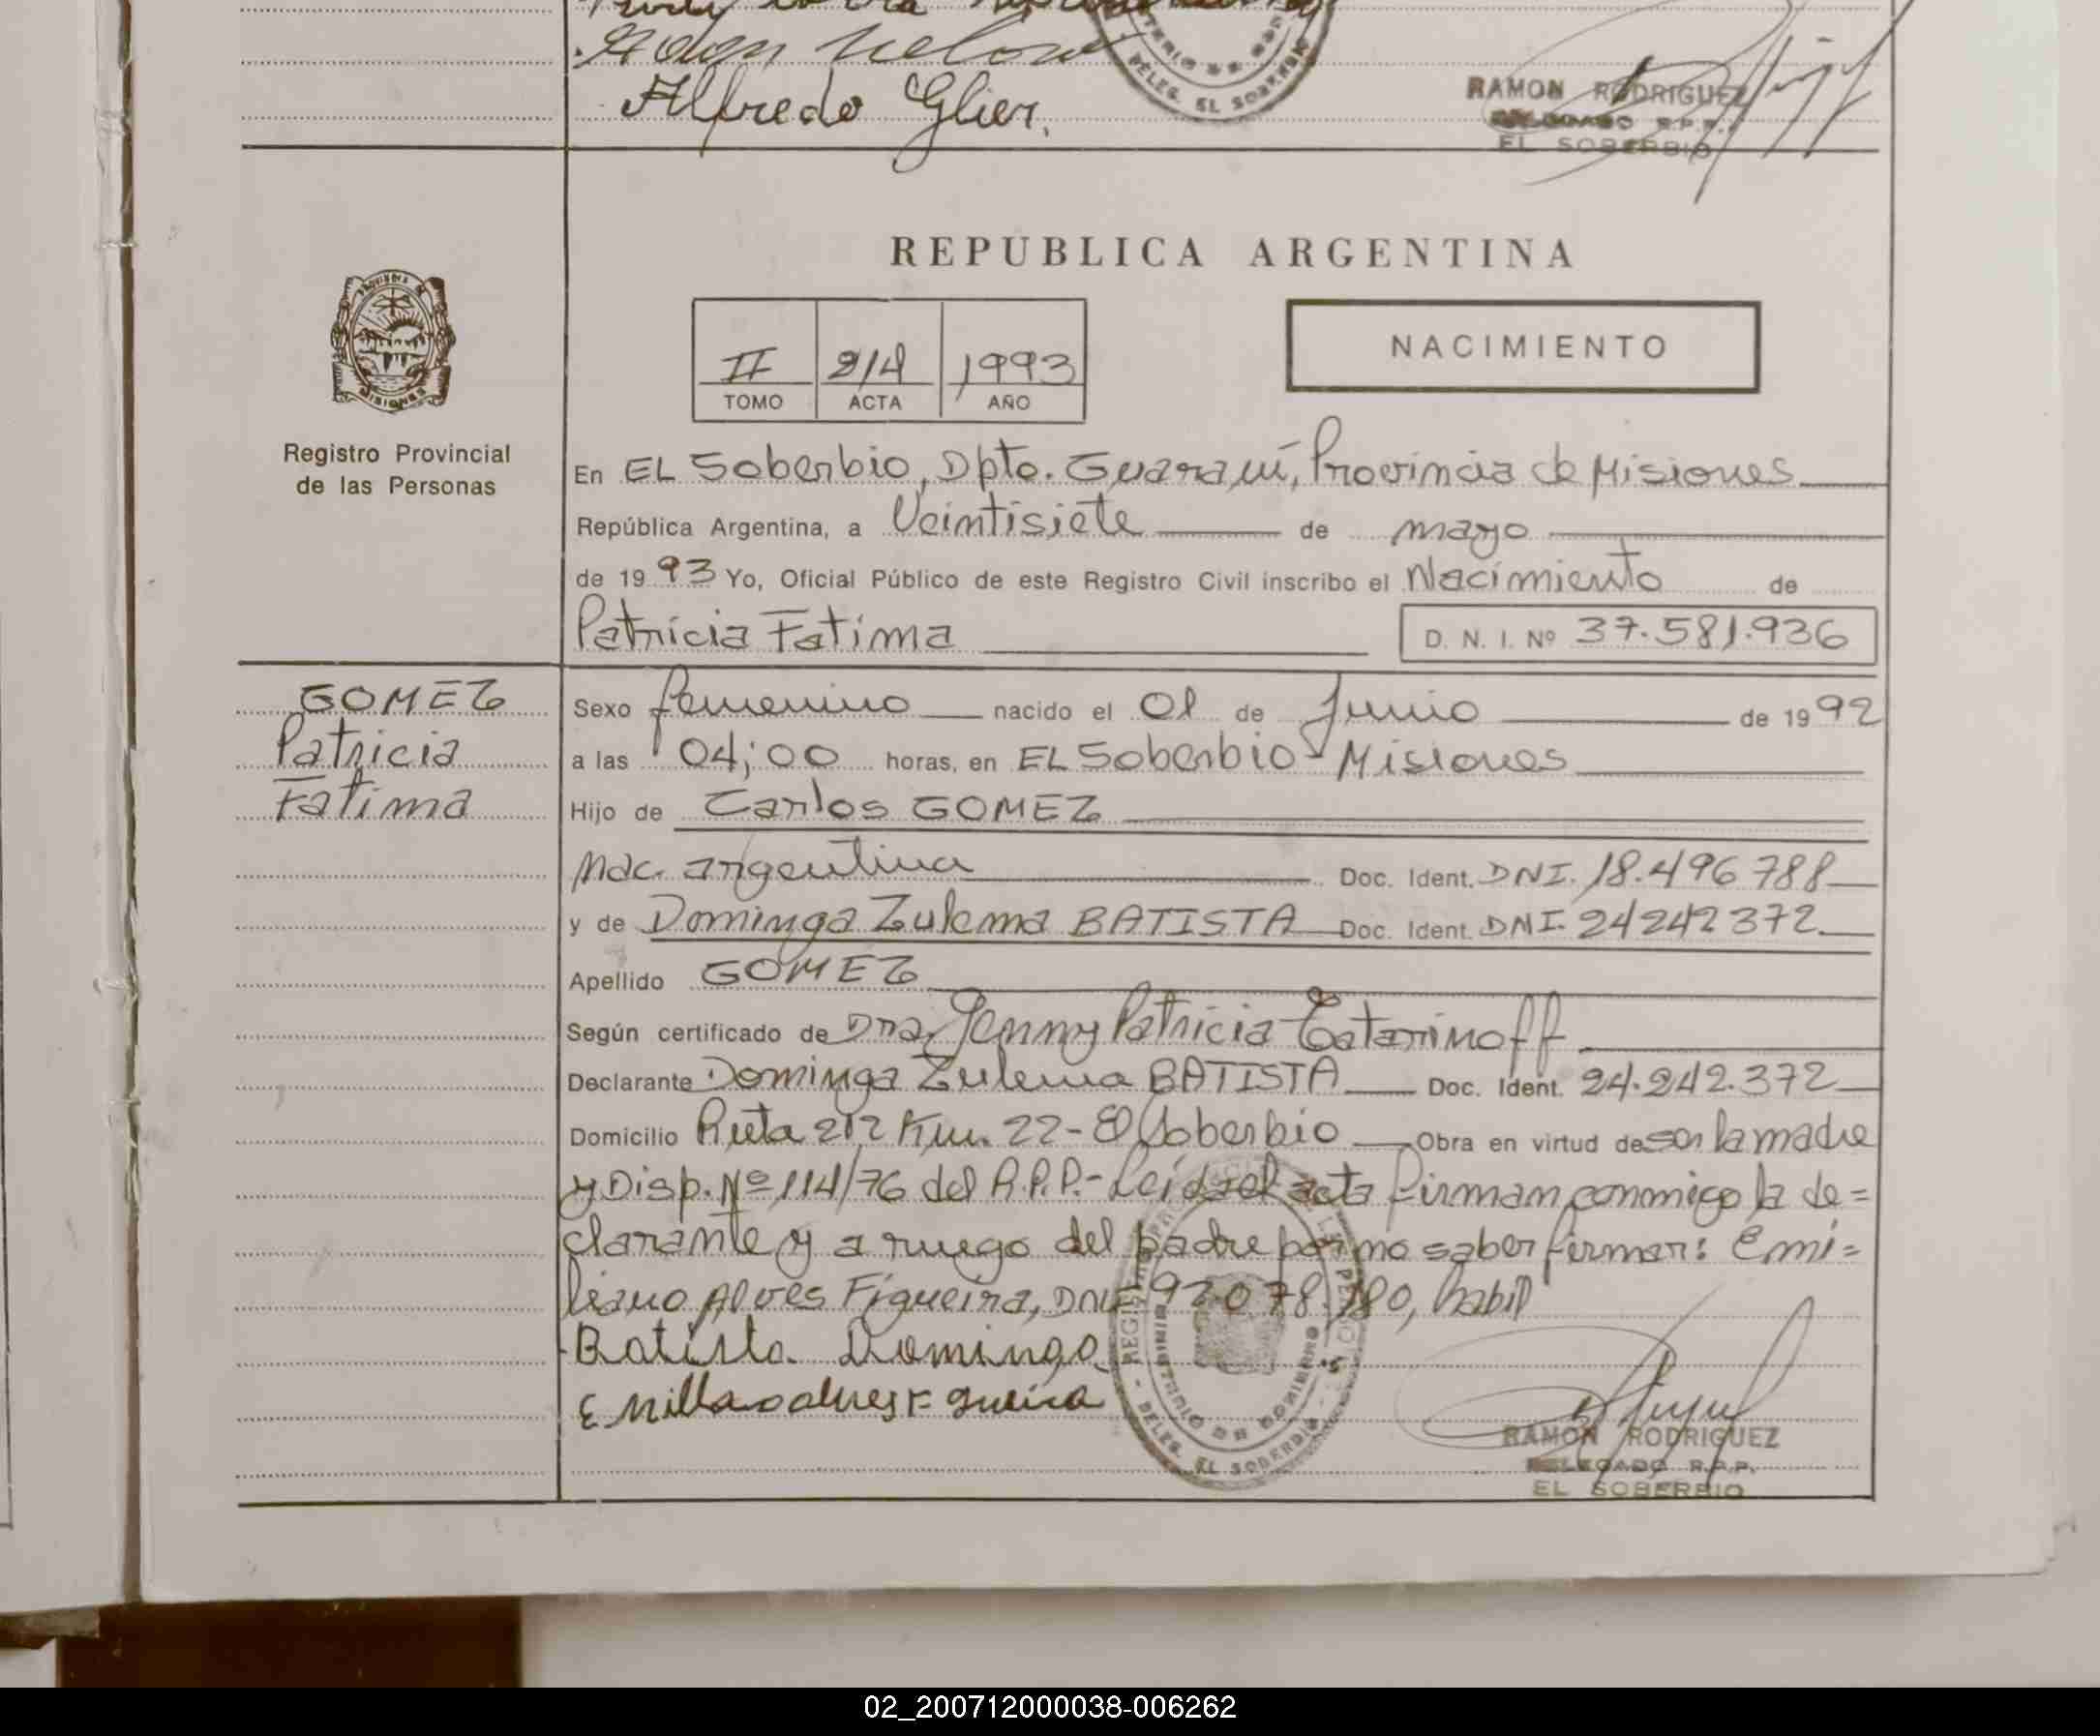 Alfredo Glier.
RAMON RODRIGUEZ
DELEGADO R.P.P.
EL SOBERBIO
DELEG. EL SOBERBIO
REPUBLICA ARGENTINA
II
1993
TOMO
ACTA
AÑO
NACIMIENTO
MISIONES
Registro Provincial
de las Personas
En EL Soberbio, Dpto. Guaraní, Provincia de Misiones
República Argentina, a Veintisiete de mayo
de 19 93 Yo, Oficial Público de este Registro Civil inscribo el Nacimiento de
Patricia Fatima
D. N. I. Nº 37.581.936
GOMEZ
Patricia
Fatima
Sexo femenino nacido el 01 de Junio de 19 92
a las 04;00 horas, en EL Soberbio - Misiones
Hijo de Carlos GOMEZ
Nac. argentina Doc. Ident. DNI. 18.496788
y de Dominga Zulema BATISTA Doc. Ident. DNI. 24242372
Apellido GOMEZ
Según certificado de Dra. Jenny Patricia Tatarinoff
Declarante Dominga Zulema BATISTA Doc. Ident. 24.242.372
Domicilio Ruta 212 Km. 22 - El Soberbio Obra en virtud de ser la madre
y Disp. Nº 114/76 del R.P.P.- Leída el acta firman conmigo la de=
clarante y a ruego del padre por no saber firmar: Emi=
liano Alves Figueira, DNI 92078.180, habil
Batista Dominga
RAMON RODRIGUEZ
DELEGADO R.P.P.
EL SOBERBIO
DELEG. EL SOBERBIO
02_200712000038-006262